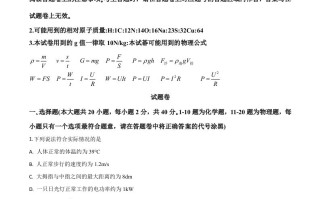 试题卷上无效。
2.可能用到的相对原子质量:H:1C:12N:14O:16Na:23S:32Cu:64
3.本试卷用到的 g 值一律取 10N/kg:本试卷可能用到的物理公式
ρ=m/V v=s/t G=mg P=F/S P=ρgh F浮=ρgV排
W=FS P=W/t I=U/R W=UIt P=UI P=I²R P=U²/R
试题卷
一、选择题(本大题共 20 小题，每小题 2 分，共 40 分。1-10 题为化学题，11-20 题为物理题，每
小题只有一个选项最符合题意，请在答题卷中将正确答案的代号涂黑)
1.下列说法符合实际情况的是
A. 人体正常的体温约为 39°C
B. 人正常步行的速度约为 1.2m/s
C. 大拇指与中指之间的最大距离约为 8dm
D. 一只日光灯正常工作的电功率约为 1kW